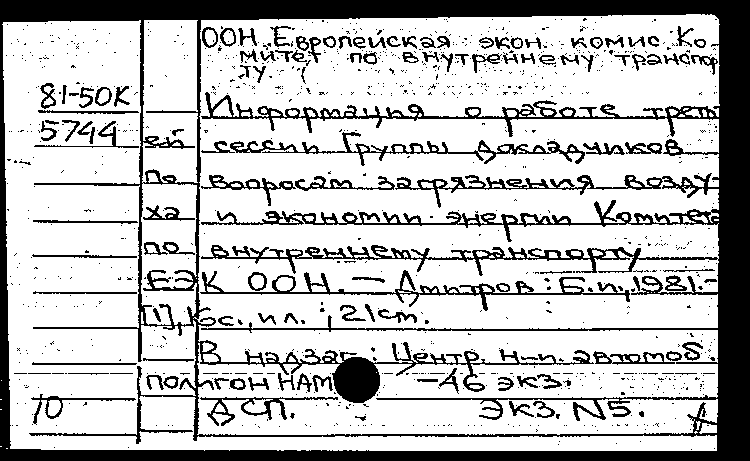 ООН. Европейская экон. комис. Ко-
митет по внутреннему транспор
ту
81-50К
Информация о работе треть
5744 ей сессии Группы докладчиков
по вопросам загрязнения возду-
ха и экономии энергии Комитета
по внутреннему транспорту
ЕЭК ООН. — Дмитров : Б.и., 1981.-
[1], 16с., ил. ; 21см.
В надзаг: Центр. н-и. автомоб.
полигон НАМ —46 экз.
10 ДСП. Экз. N5.